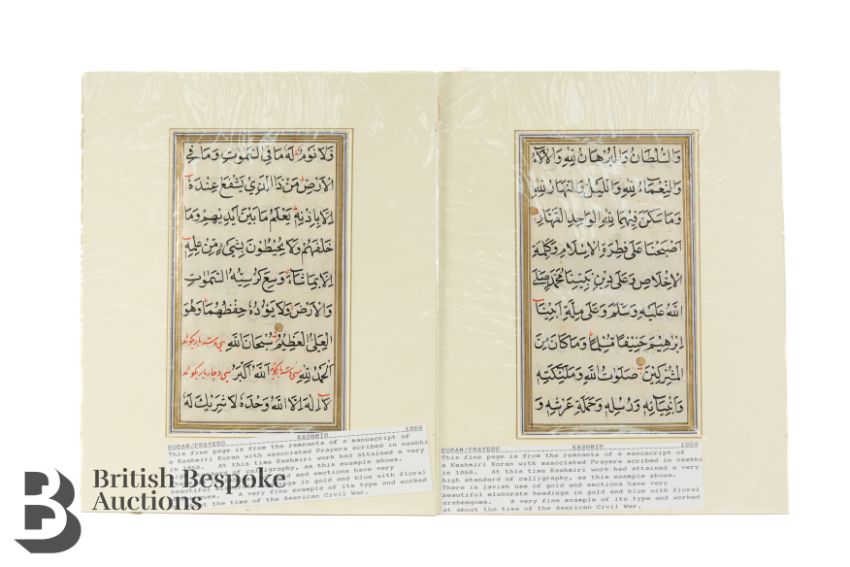 وَلَا نَوْمٌ لَهُ مَا فِي السَّمٰوٰتِ وَمَا فِي
الْاَرْضِ مَنْ ذَا الَّذِي يَشْفَعُ عِنْدَهُ
اِلَّا بِاِذْنِهِ يَعْلَمُ مَا بَيْنَ اَيْدِيهِمْ وَمَا
خَلْفَهُمْ وَلَا يُحِيطُونَ بِشَيْءٍ مِنْ عِلْمِهِ
اِلَّا بِمَا شَاءَ وَسِعَ كُرْسِيُّهُ السَّمٰوٰتِ
وَالْاَرْضَ وَلَا يَؤُدُهُ حِفْظُهُمَا وَهُوَ
الْعَلِيُّ الْعَظِيمُ سُبْحَانَ اللّٰهِ سی و سه بار بگوید
اَلْحَمْدُ لِلّٰهِ اَللّٰهُ اَكْبَرُ سی و چهار بار بگوید
لَا اِلٰهَ اِلَّا اللّٰهُ وَحْدَهُ لَا شَرِيكَ لَهُ
KORAN/PRAYERS KASHMIR 1868
This fine page is from the remnants of a manuscript of
a Kashmiri Koran with associated Prayers scribed in naskhi
in 1868. At this time Kashmiri work had attained a very
standard of calligraphy, as this example shows.
and sections have very
beautiful in gold and blue with floral
A very fine example of its type and worked
at about the time of the American Civil War.
وَالسُّلْطَانُ وَالْبُرْهَانُ لِلّٰهِ وَالْاٰلَاءُ
وَالنَّعْمَاءُ لِلّٰهِ وَاللَّيْلُ وَالنَّهَارُ لِلّٰهِ
وَمَا سَكَنَ فِيهِمَا لِلّٰهِ الْوَاحِدِ الْقَهَّارِ
اَصْبَحْنَا عَلٰى فِطْرَةِ الْاِسْلَامِ وَكَلِمَةِ
الْاِخْلَاصِ وَعَلٰى دِينِ نَبِيِّنَا مُحَمَّدٍ صَلَّى
اللّٰهُ عَلَيْهِ وَسَلَّمَ وَعَلٰى مِلَّةِ اَبِينَا
اِبْرٰهِيمَ حَنِيفًا مُسْلِمًا وَمَا كَانَ مِنَ
الْمُشْرِكِينَ صَلَوَاتُ اللّٰهِ وَمَلٰئِكَتِهِ
وَاَنْبِيَائِهِ وَرُسُلِهِ وَحَمَلَةِ عَرْشِهِ وَ
KORAN/PRAYERS KASHMIR 1868
This fine page is from the remnants of a manuscript of
a Kashmiri Koran with associated Prayers scribed in naskhi
in 1868. At this time Kashmiri work had attained a very
high standard of calligraphy, as this example shows.
There is lavish use of gold and sections have very
beautiful elaborate headings in gold and blue with floral
arabesques. A very fine example of its type and worked
at about the time of the American Civil War.
British Bespoke
Auctions